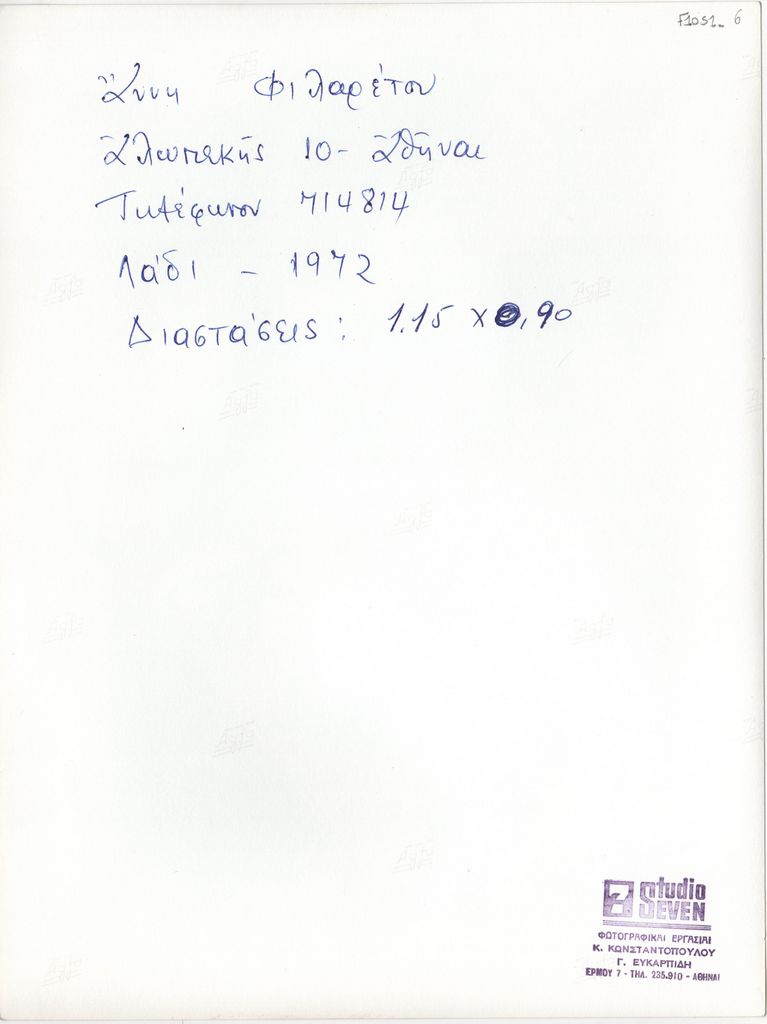 F1051_ 6
Ἄννη Φιλαρέτου
Ἀλωπεκῆς 10 - Ἀθῆναι
Τηλέφωνον 714814
Λάδι - 1972
Διαστάσεις : 1.15 x 0,90
Studio
SEVEN
ΦΩΤΟΓΡΑΦΙΚΑΙ ΕΡΓΑΣΙΑΙ
Κ. ΚΩΝΣΤΑΝΤΟΠΟΥΛΟΥ
Γ. ΕΥΚΑΡΠΙΔΗ
ΕΡΜΟΥ 7 - ΤΗΛ. 235.910 - ΑΘΗΝΑΙ